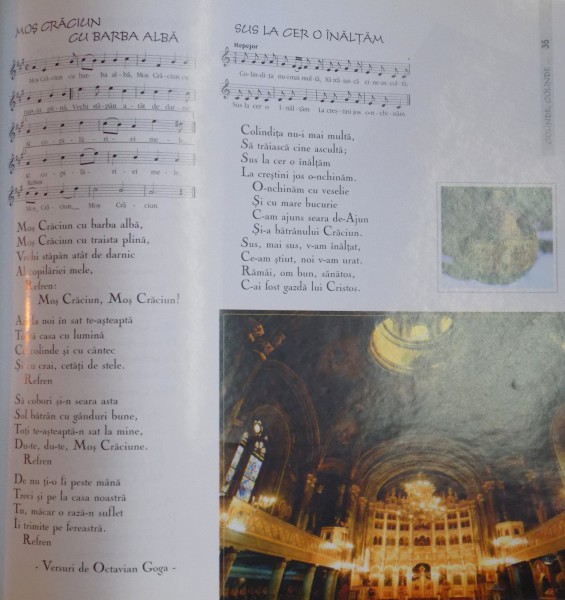 MOȘ CRĂCIUN
CU BARBA ALBĂ
Moș Crăciun cu bar - ba al-bă, Moș Crăciun cu
Vechi stăpân a - tât de dar-nic
Al co - pi - lă - ri - ei me - le.
Al co - pi - lă - ri - ei me - le.
Refren
Moș Cră - ciun, Moș Cră - ciun.
Moș Crăciun cu barba albă,
Moș Crăciun cu traista plină,
Vechi stăpân atât de darnic
Al copilăriei mele,
Refren:
Moș Crăciun, Moș Crăciun!
la noi în sat te-așteaptă
casa cu lumină
colinde și cu cântec
Și cu crai, cetăți de stele.
Refren
Să cobori și-n seara asta
Sol bătrân cu gânduri bune,
Toți te-așteaptă-n sat la mine,
Du-te, du-te, Moș Crăciune.
Refren
De nu ți-o fi peste mână
Treci și pe la casa noastră
Tu, măcar o rază-n suflet
Îi trimite pe fereastră.
Refren
- Versuri de Octavian Goga -
SUS LA CER O ÎNĂLȚĂM
Repejor
Co-lin-di-ța nu-i mai mul-tă, Să tră-ias-că ci-ne-as-cul-tă,
Sus la cer o î-năl-țăm La creș-tini jos o-n-chi-năm.
Colindița nu-i mai multă,
Să trăiască cine ascultă;
Sus la cer o înălțăm
La creștini jos o-nchinăm.
O-nchinăm cu veselie
Și cu mare bucurie
C-am ajuns seara de-Ajun
Și-a bătrânului Crăciun.
Sus, mai sus, v-am înălțat,
Ce-am știut, noi v-am urat.
Rămâi, om bun, sănătos,
C-ai fost gazdă lui Cristos.
35
COLINDE, COLINDE